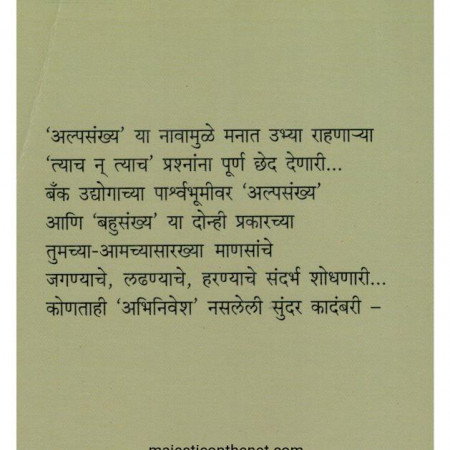 ‘अल्पसंख्य’ या नावामुळे मनात उभ्या राहणाऱ्या
‘त्याच न् त्याच’ प्रश्नांना पूर्ण छेद देणारी...
बँक उद्योगाच्या पार्श्वभूमीवर ‘अल्पसंख्य’
आणि ‘बहुसंख्य’ या दोन्ही प्रकारच्या
तुमच्या-आमच्यासारख्या माणसांचे
जगण्याचे, लढण्याचे, हरण्याचे संदर्भ शोधणारी...
कोणताही ‘अभिनिवेश’ नसलेली सुंदर कादंबरी –
majesticonthenet.com